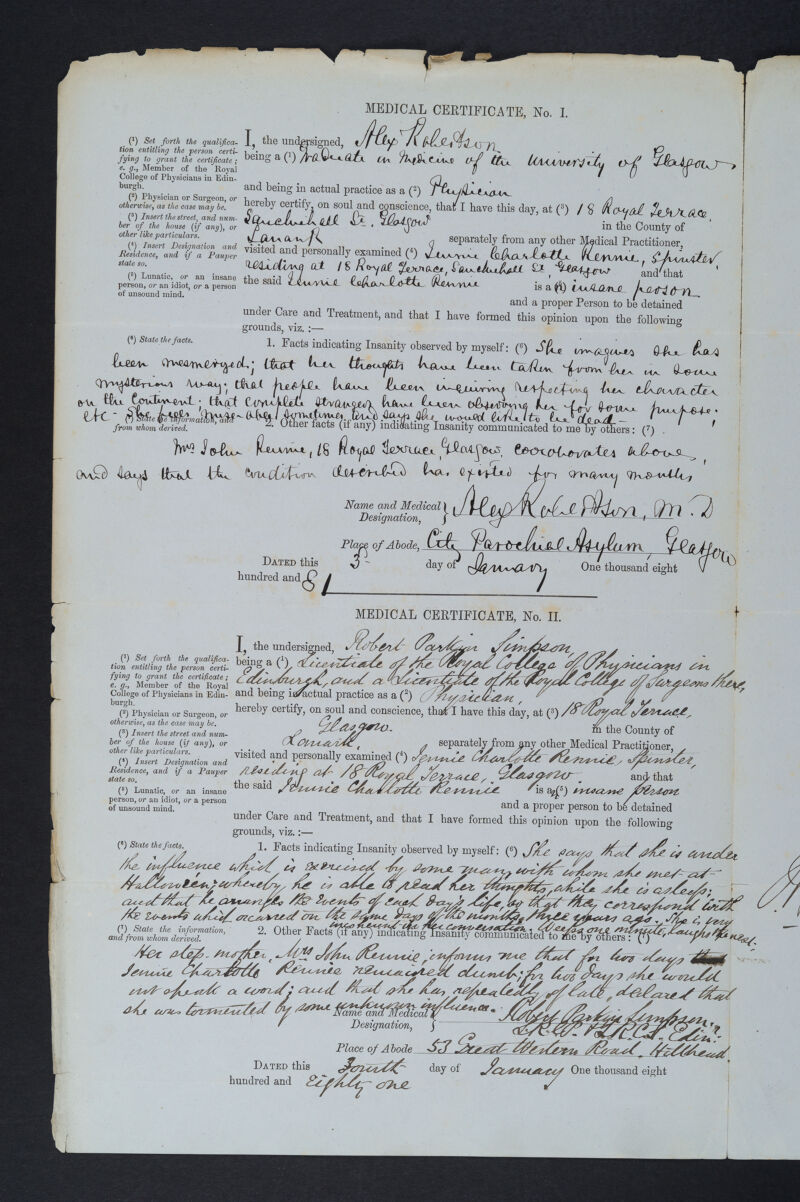 MEDICAL CERTIFICATE, No. I.
(1) Set forth the qualifica-
tion entitling the person certi-
fying to grant the certificate;
e. g., Member of the Royal
College of Physicians in Edin-
burgh.
(2) Physician or Surgeon, or
otherwise, as the case may be.
(3) Insert the street, and num-
ber of the house (if any), or
other like particulars.
(4) Insert Designation and
Residence, and if a Pauper
state so.
(5) Lunatic, or an insane
person, or an idiot, or a person
of unsound mind.
I, the undersigned, Alex Robertson
being a (1) Graduate in Medicine of the University of Glasgow
and being in actual practice as a (2) Physician
hereby certify, on soul and conscience, that I have this day, at (3) 18 Royal Terrace,
Sauchiehall St. Glasgow in the County of
Lanark separately from any other Medical Practitioner,
visited and personally examined (4) Jennie Charlotte Rennie, Spinster,
residing at 18 Royal Terrace, Sauchiehall St, Glasgow and that
the said Jennie Charlotte Rennie is a (5) insane person
and a proper Person to be detained
under Care and Treatment, and that I have formed this opinion upon the following
grounds, viz. :—
(6) State the facts.
1. Facts indicating Insanity observed by myself: (6) She imagines she has
been mesmerized; that her thoughts have been taken from her in some
mysterious way; that people have been inquiring respecting her character
on the Continent; that complete strangers have been observing her for some purpose;
etc - She feels miserable sometimes and says she would like to be dead -
(7) State the information, and
from whom derived.
2. Other facts (if any) indicating Insanity communicated to me by others: (7)
Mrs John Rennie, 18 Royal Terrace, Glasgow, corroborates above,
and says that the condition described has existed for many months
Name and Medical Designation, Alex Robertson, M. D
Place of Abode, City Parochial Asylum, Glasgow
DATED this 3d day of January One thousand eight
hundred and 81
MEDICAL CERTIFICATE, No. II.
(1) Set forth the qualifica-
tion entitling the person certi-
fying to grant the certificate;
e. g., Member of the Royal
College of Physicians in Edin-
burgh.
(2) Physician or Surgeon, or
otherwise, as the case may be.
(3) Insert the street and num-
ber of the house (if any), or
other like particulars.
(4) Insert Designation and
Residence, and if a Pauper
state so.
(5) Lunatic, or an insane
person, or an idiot, or a person
of unsound mind.
I, the undersigned, Robert Parkin Simpson,
being a (1) Licentiate of the Royal College of Physicians in
Edinburgh, and a Licentiate of the Royal College of Surgeons there,
and being in actual practice as a (2) Physician,
hereby certify, on soul and conscience, that I have this day, at (3) 18 Royal Terrace,
Glasgow. in the County of
Lanark, separately from any other Medical Practitioner,
visited and personally examined (4) Jennie Charlotte Rennie, Spinster,
residing at 18 Royal Terrace, Glasgow and that
the said Jennie Charlotte Rennie is a (5) insane person
and a proper Person to be detained
under Care and Treatment, and that I have formed this opinion upon the following
grounds, viz. :—
(6) State the facts.
1. Facts indicating Insanity observed by myself: (6) She says that she is under
the influence which is exercised by some man, with whom she met at
Halloween; whereby he is able to read her thoughts, while she is asleep;
and that he arranges the events of each day's life, so that they correspond with
the events which occurred on the same days of the months three years ago. She is very
incoherent in her conversation. Weeps one minute, laughs the next.
(7) State the information,
and from whom derived.
2. Other Facts (if any) indicating Insanity communicated to me by others: (7)
Her step-mother, Mrs John Rennie, informs me that for two days
Jennie Charlotte Rennie remained dumb; for two days she would
not speak a word; and that she has repeatedly, of late, declared that
she was tormented by some unknown influence.
Name and Medical Designation, Robert Parkin Simpson
L.R.C.P. & L.R.C.S. Edin:
Place of Abode 53 Great Western Road, Hillhead.
DATED this Fourth day of January One thousand eight
hundred and Eighty one